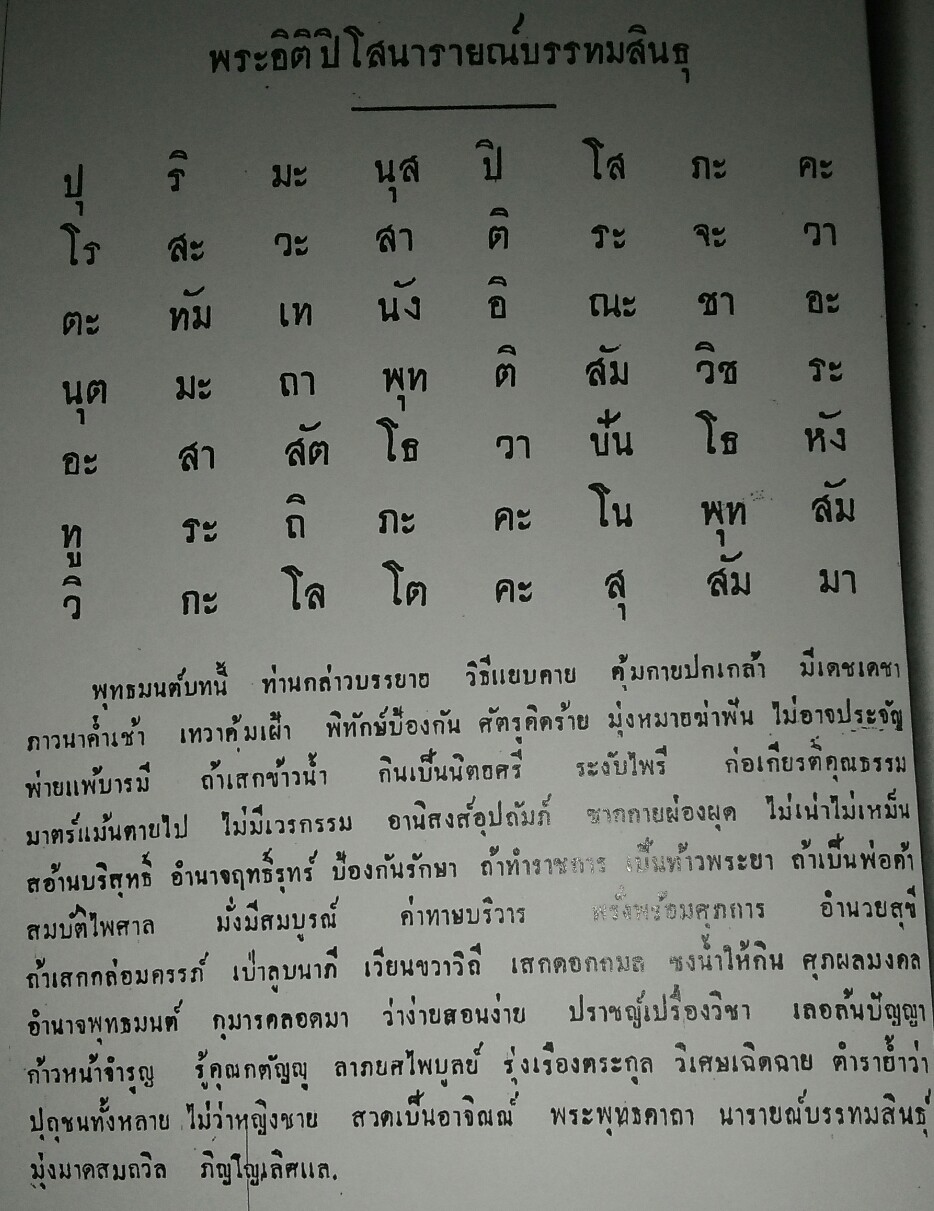 พระอิติปิโสนารายณ์บรรทมสินธุ
ปุ ริ มะ นุส ปิ โส ภะ คะ
โร สะ วะ สา ติ ระ จะ วา
ตะ ทัม เท นัง อิ ณะ ชา อะ
นุต มะ ถา พุท ติ สัม วิช ระ
อะ สา สัต โธ วา ปัน โธ หัง
ทู ระ ถิ ภะ คะ โน พุท สัม
วิ กะ โล โต คะ สุ สัม มา
พุทธมนต์บทนี้ ท่านกล่าวบรรยาย วิธีแยบคาย คุ้มกายปกเกล้า มีเดชเดชา
ภาวนาค่ำเช้า เทวาคุ้มเฝ้า พิทักษ์ป้องกัน ศัตรูคิดร้าย มุ่งหมายฆ่าฟัน ไม่อาจประจัญ
พ่ายแพ้บารมี ถ้าเสกข้าวน้ำ กินเป็นนิตยศรี ระงับไพรี ก่อเกียรติ์คุณธรรม
มาตร์แม้นตายไป ไม่มีเวรกรรม อานิสงส์อุปถัมภ์ ซากกายผ่องผุด ไม่เน่าไม่เหม็น
สอ้านบริสุทธิ์ อำนาจฤทธิ์รุทร์ ป้องกันรักษา ถ้าทำราชการ เป็นท้าวพระยา ถ้าเป็นพ่อค้า
สมบัติไพศาล มั่งมีสมบูรณ์ ค่าทาษบริวาร พรั่งพร้อมศุภการ อำนวยสุขี
ถ้าเสกกล่อมครรภ์ เป่าลูบนาภี เวียนขวาวิถี เสกดอกกมล ชงน้ำให้กิน ศุภผลมงคล
อำนาจพุทธมนต์ กุมารคลอดมา ว่าง่ายสอนง่าย ปราชญ์เปรื่องวิชา เลอล้นปัญญา
ก้าวหน้าจำรูญ รู้คุณกตัญญู ลาภยศไพบูลย์ รุ่งเรืองตระกูล วิเศษเฉิดฉาย ตำราย้ำว่า
ปุถุชนทั้งหลาย ไม่ว่าหญิงชาย สวดเป็นอาจิณณ์ พระพุทธคาถา นารายณ์บรรทมสินธุ์
มุ่งมาดสมถวิล ภิญโญเลิศแล.